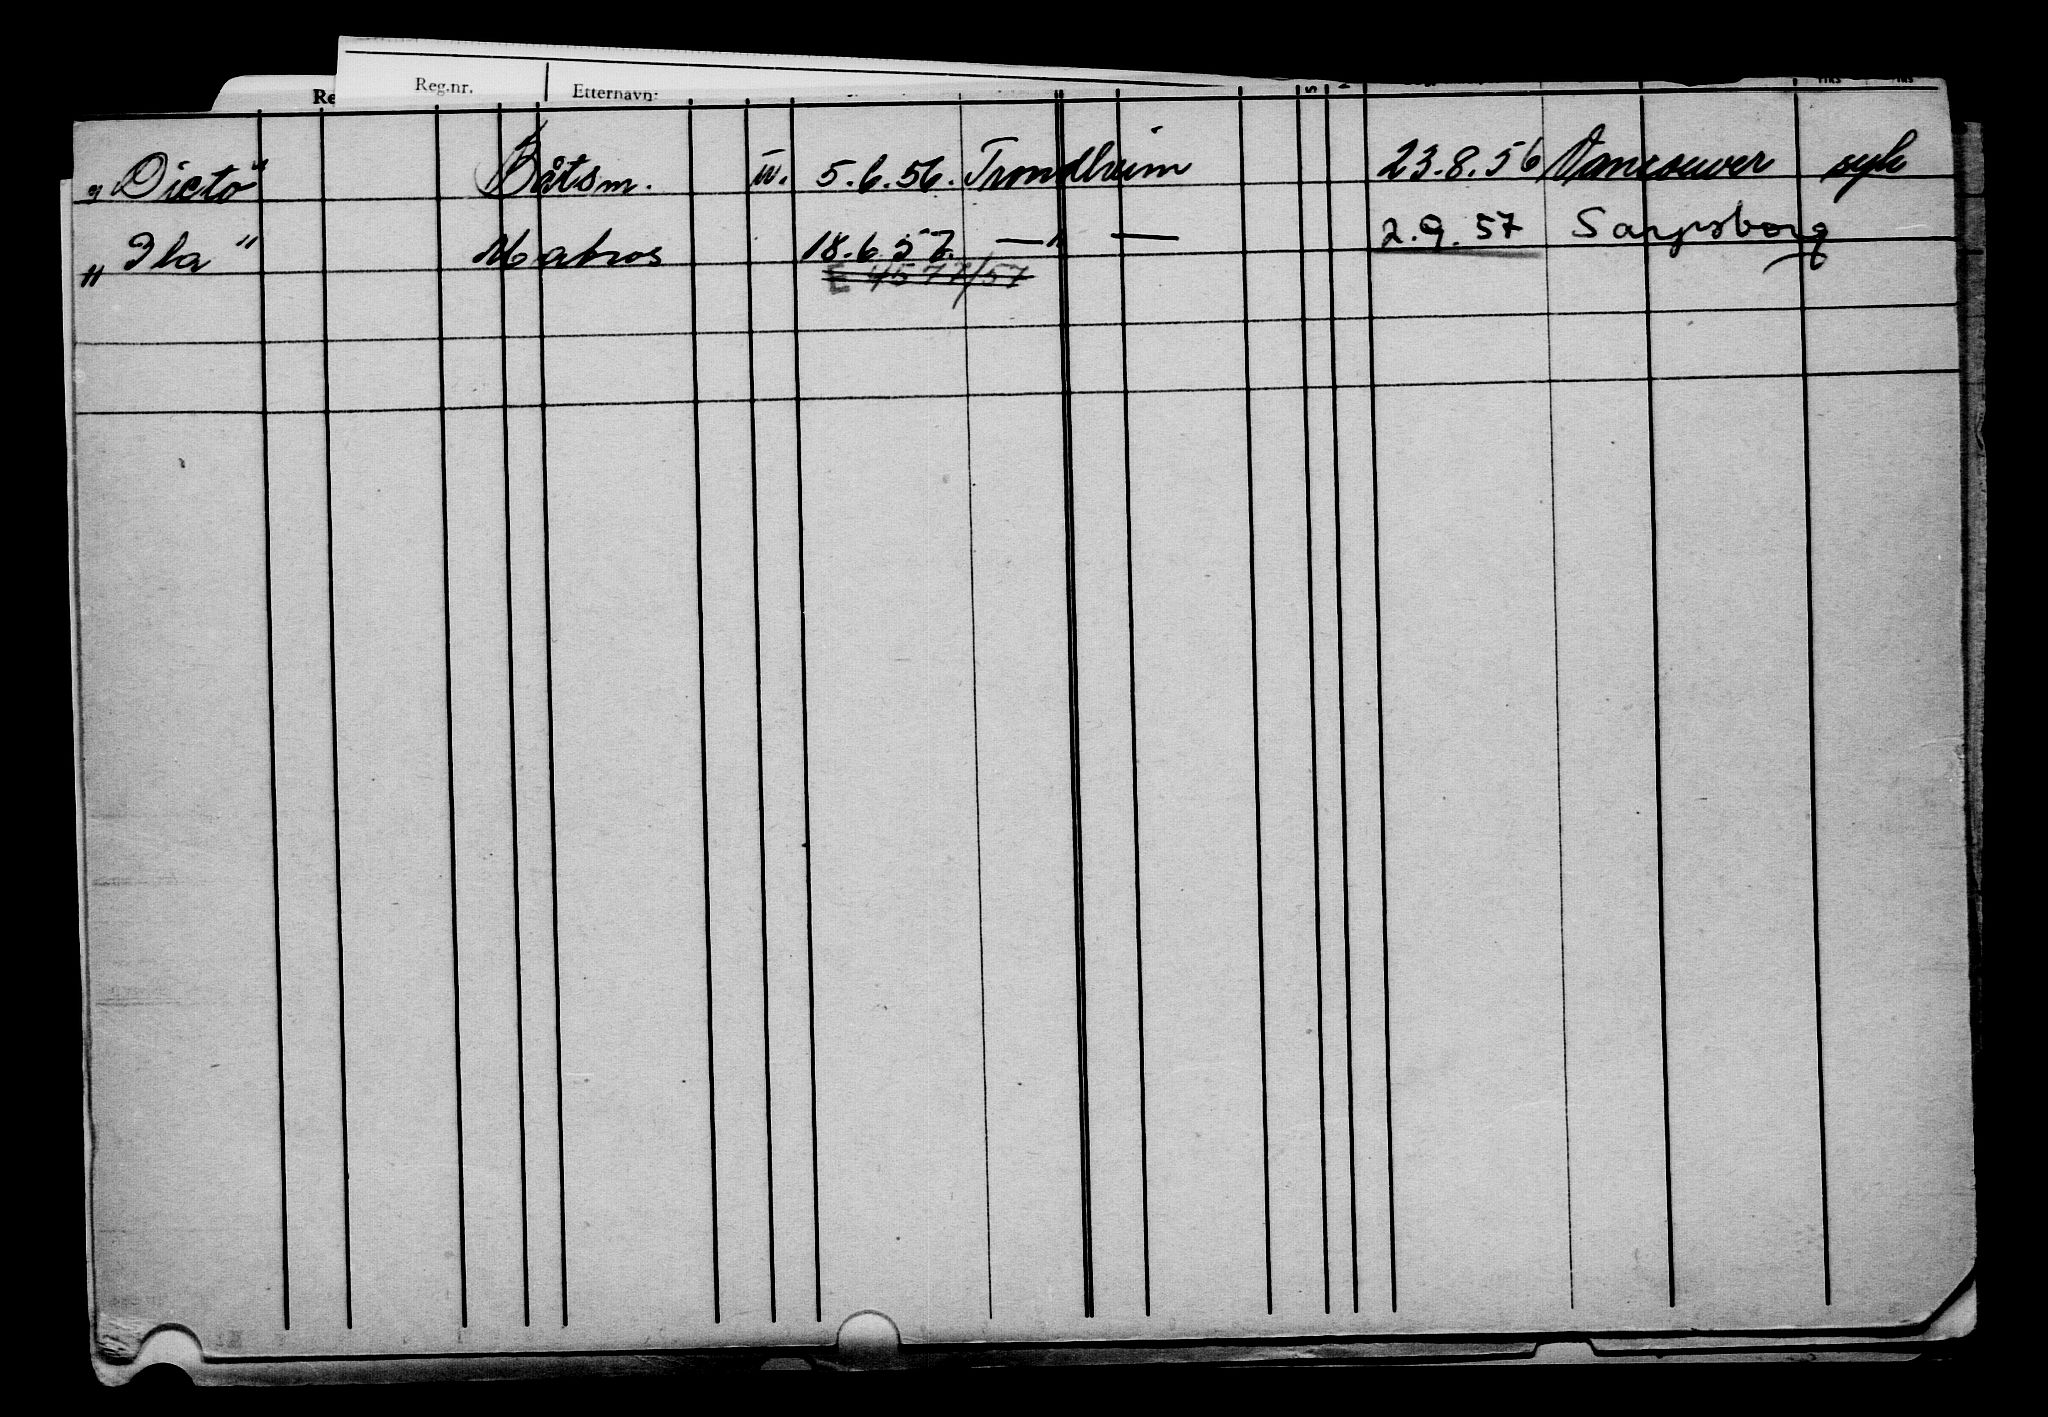 Re Reg.nr. Etternavn:
"Dicto" Båtsm. 5.6.56. Trondheim 23.8.56 Vancouver syk
"Ila" Matros 18.6.57. —"— 2.9.57 Sarpsborg
E 4577/57